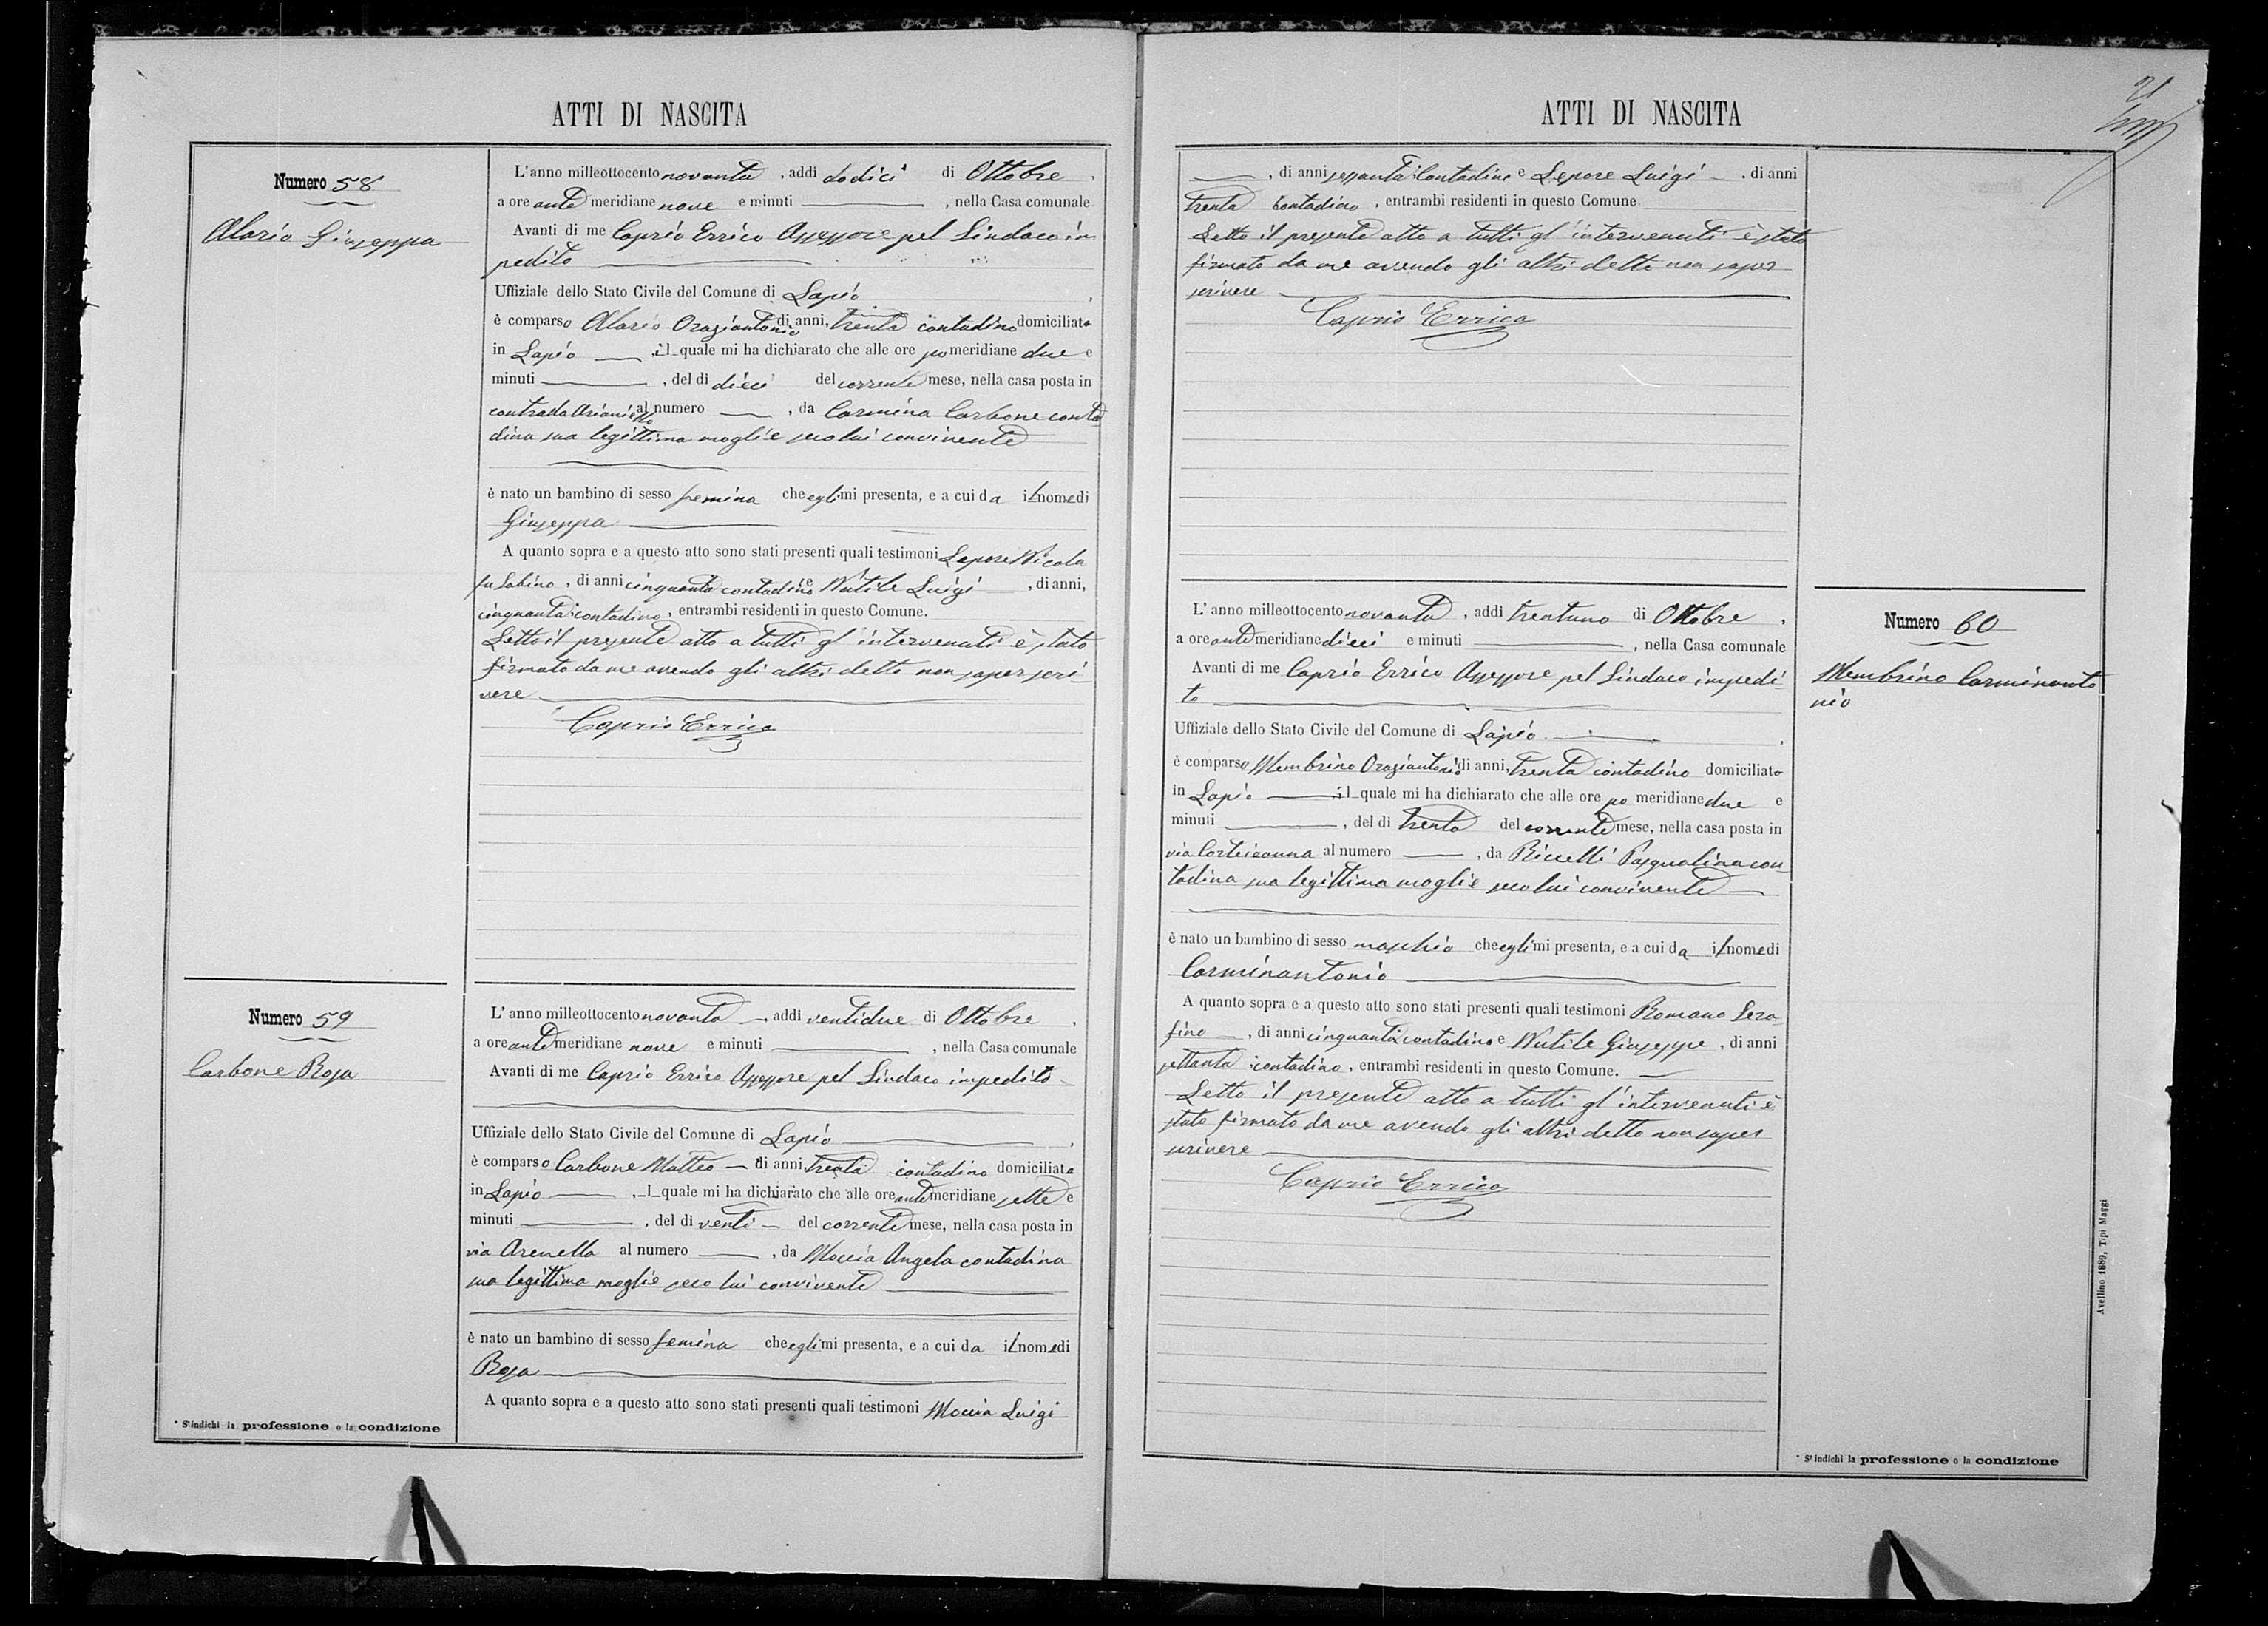 ATTI DI NASCITA
Numero 58
Alario Giuseppa
L'anno milleottocento novanta, addì dodici di Ottobre,
a ore ante meridiane nove e minuti, nella Casa comunale.
Avanti di me Caprio Errico Assessore pel Sindaco im
pedito
Uffiziale dello Stato Civile del Comune di Lapio,
è comparso Alario Oraziantonio di anni, trenta contadino domiciliato
in Lapio, il quale mi ha dichiarato che alle ore po meridiane due e
minuti, del dì dieci del corrente mese, nella casa posta in
contrada Arianiello al numero, da Carmina Carbone conta
dina sua legittima moglie seco lui convivente
è nato un bambino di sesso femina che egli mi presenta, e a cui da il nome di
Giuseppa
A quanto sopra e a questo atto sono stati presenti quali testimoni Lepore Nicola
fu Sabino, di anni cinquanta contadino e Nutile Luigi, di anni,
cinquanta contadino, entrambi residenti in questo Comune.
Letto il presente atto a tutti gl'intervenuti è stato
firmato da me avendo gli altri detto non saper scri
vere
Caprio Errico
Numero 59
Carbone Rosa
L'anno milleottocento novanta addì ventidue di Ottobre,
a ore ante meridiane nove e minuti, nella Casa comunale
Avanti di me Caprio Errico Assessore pel Sindaco impedito
Uffiziale dello Stato Civile del Comune di Lapio,
è comparso Carbone Matteo di anni trenta contadino domiciliato
in Lapio, l quale mi ha dichiarato che alle ore ante meridiane sette e
minuti, del dì venti del corrente mese, nella casa posta in
via Arenella al numero, da Moccia Angela contadina
sua legittima moglie seco lui convivente
è nato un bambino di sesso femina che egli mi presenta, e a cui da il nome di
Rosa
A quanto sopra e a questo atto sono stati presenti quali testimoni Moccia Luigi
* S'indichi la professione o la condizione
ATTI DI NASCITA
21
, di anni sessanta contadino e Lepore Luigi, di anni
trenta contadino, entrambi residenti in questo Comune.
Letto il presente atto a tutti gl'intervenuti è stato
firmato da me avendo gli altri detto non saper
scrivere
Caprio Errico
Numero 60
Membrino Carminanto
nio
L'anno milleottocento novanta, addì trentuno di Ottobre,
a ore ante meridiane dieci e minuti, nella Casa comunale
Avanti di me Caprio Errico Assessore pel Sindaco impedi
to
Uffiziale dello Stato Civile del Comune di Lapio,
è comparso Membrino Oraziantonio di anni, trenta contadino domiciliato
in Lapio il quale mi ha dichiarato che alle ore po meridiane due e
minuti, del dì trenta del corrente mese, nella casa posta in
via al numero, da Riccelli Pasqualina con
tadina sua legittima moglie seco lui convivente
è nato un bambino di sesso maschio che egli mi presenta, e a cui da il nome di
Carminantonio
A quanto sopra e a questo atto sono stati presenti quali testimoni Romano Sera
fino, di anni cinquanta contadino e Nutile Giuseppe, di anni
settanta contadino, entrambi residenti in questo Comune.
Letto il presente atto a tutti gl'intervenuti è
stato firmato da me avendo gli altri detto non saper
scrivere
Caprio Errico
* S'indichi la professione o la condizione
Avellino 1889, Tipi Maggi